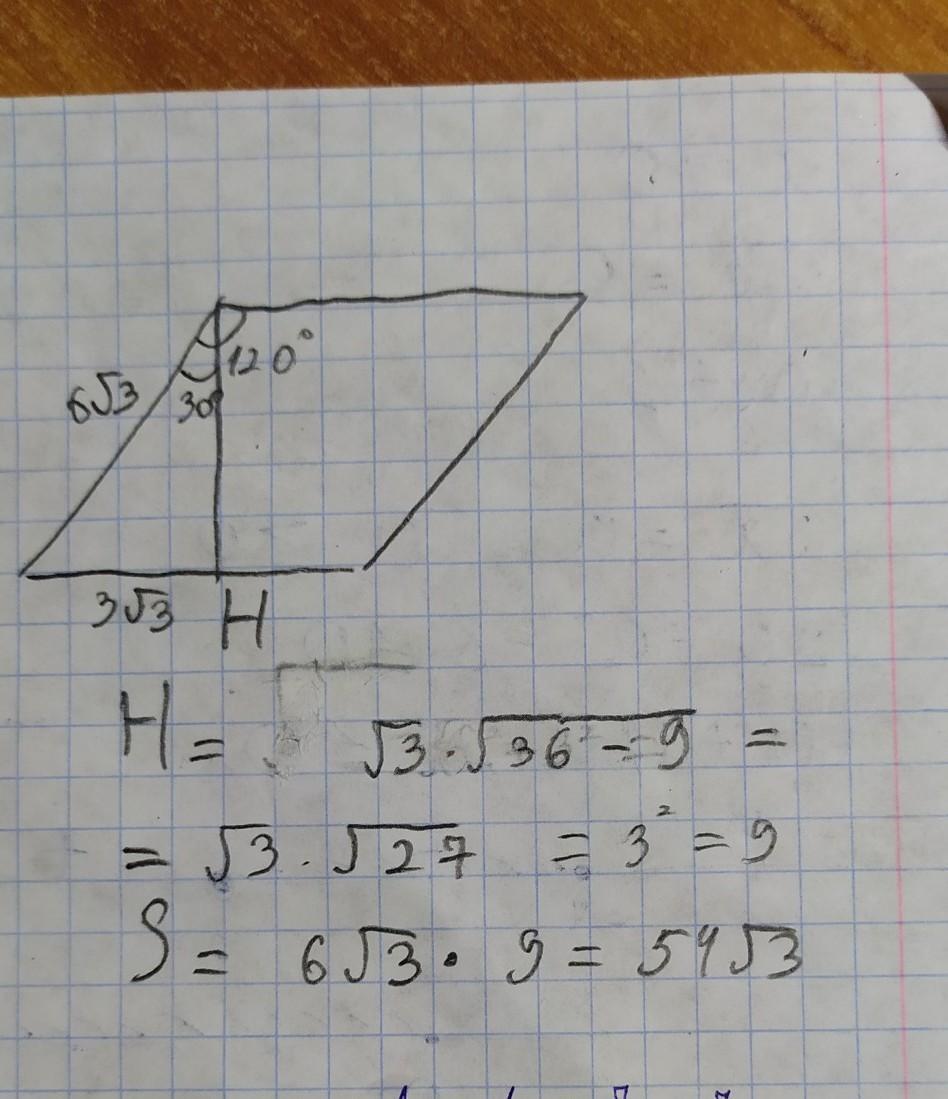 120°
6√3
30°
3√3 H
H = √3·√36 - 9 =
= √3·√27 = 3² = 9
S = 6√3 · 9 = 54√3